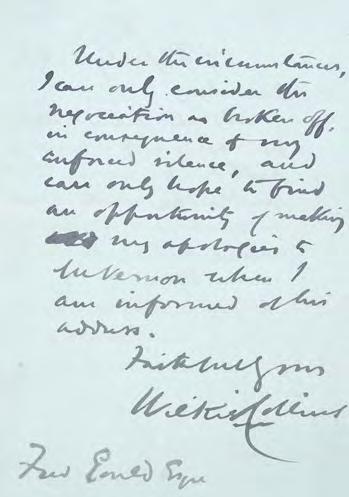 Under the circumstances,
I can only consider the
negociation as broken off,
in consequence of my
enforced silence, and
can only hope to find
an opportunity of making
my apologies to
Mr Vernon when I
am informed of his
address.
Faithfully yours
Wilkie Collins
Fred Gould Esqre